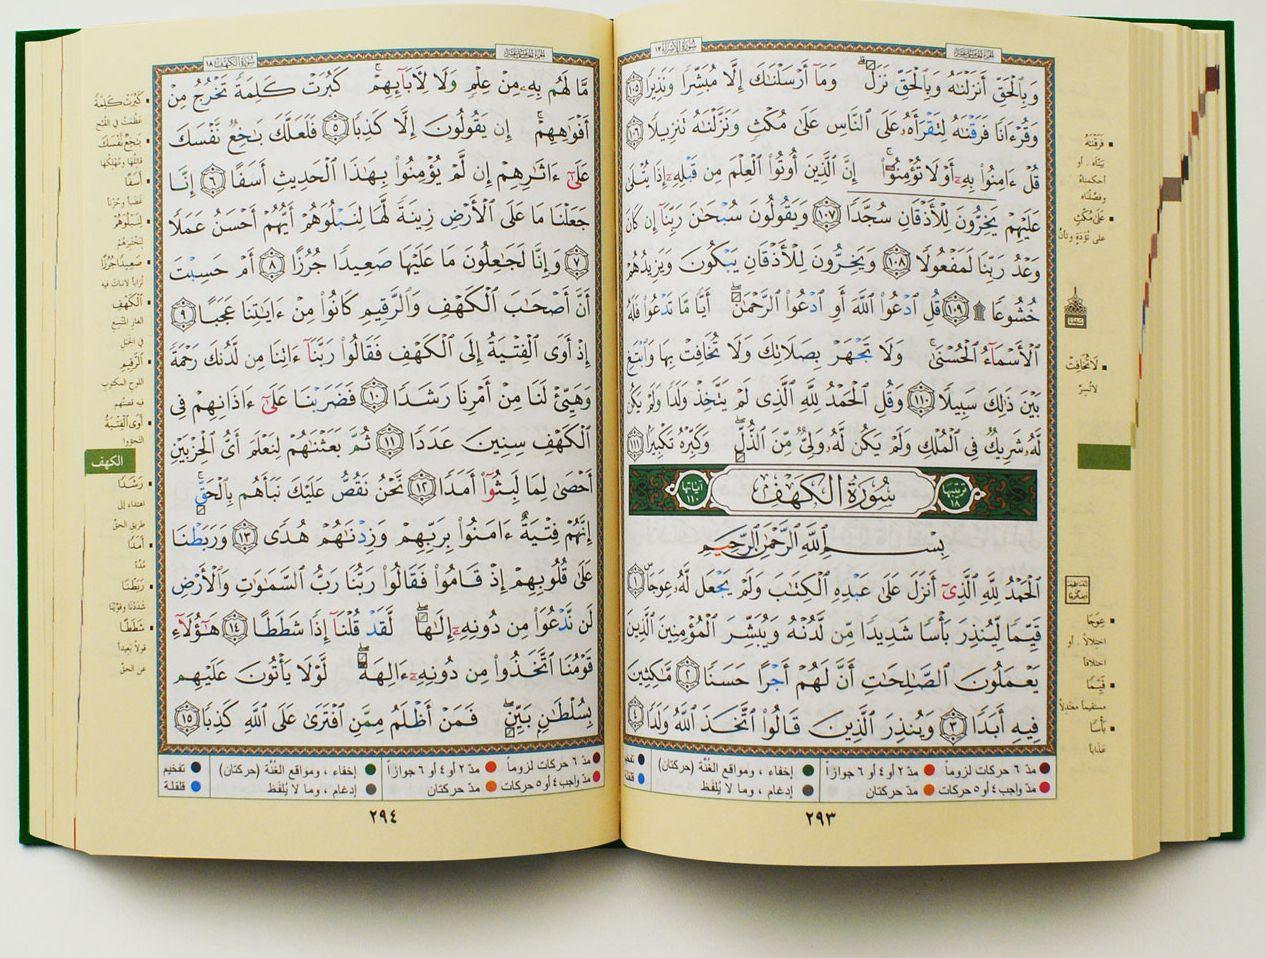 سُورَةُ الإِسۡرَاءِ ١٧
الجُزءُ الخَامِسَ عَشَرَ
وَبِٱلۡحَقِّ أَنزَلۡنَٰهُ وَبِٱلۡحَقِّ نَزَلَۗ وَمَآ أَرۡسَلۡنَٰكَ إِلَّا مُبَشِّرٗا وَنَذِيرٗا ١٠٥
وَقُرۡءَانٗا فَرَقۡنَٰهُ لِتَقۡرَأَهُۥ عَلَى ٱلنَّاسِ عَلَىٰ مُكۡثٖ وَنَزَّلۡنَٰهُ تَنزِيلٗا ١٠٦
قُلۡ ءَامِنُواْ بِهِۦٓ أَوۡ لَا تُؤۡمِنُوٓاْۚ إِنَّ ٱلَّذِينَ أُوتُواْ ٱلۡعِلۡمَ مِن قَبۡلِهِۦٓ إِذَا يُتۡلَىٰ
عَلَيۡهِمۡ يَخِرُّونَۤ لِلۡأَذۡقَانِ سُجَّدٗا ١٠٧ وَيَقُولُونَ سُبۡحَٰنَ رَبِّنَآ إِن كَانَ
وَعۡدُ رَبِّنَا لَمَفۡعُولٗا ١٠٨ وَيَخِرُّونَ لِلۡأَذۡقَانِ يَبۡكُونَ وَيَزِيدُهُمۡ
خُشُوعٗا۩ ١٠٩ قُلِ ٱدۡعُواْ ٱللَّهَ أَوِ ٱدۡعُواْ ٱلرَّحۡمَٰنَۖ أَيّٗا مَّا تَدۡعُواْ فَلَهُ
ٱلۡأَسۡمَآءُ ٱلۡحُسۡنَىٰۚ وَلَا تَجۡهَرۡ بِصَلَاتِكَ وَلَا تُخَافِتۡ بِهَا وَٱبۡتَغِ
بَيۡنَ ذَٰلِكَ سَبِيلٗا ١١٠ وَقُلِ ٱلۡحَمۡدُ لِلَّهِ ٱلَّذِي لَمۡ يَتَّخِذۡ وَلَدٗا وَلَمۡ يَكُن
لَّهُۥ شَرِيكٞ فِي ٱلۡمُلۡكِ وَلَمۡ يَكُن لَّهُۥ وَلِيّٞ مِّنَ ٱلذُّلِّۖ وَكَبِّرۡهُ تَكۡبِيرَۢا ١١١
ترتيبها ١٨ سُورَةُ الكَهۡفِ آياتها ١١٠
بِسۡمِ ٱللَّهِ ٱلرَّحۡمَٰنِ ٱلرَّحِيمِ
ٱلۡحَمۡدُ لِلَّهِ ٱلَّذِيٓ أَنزَلَ عَلَىٰ عَبۡدِهِ ٱلۡكِتَٰبَ وَلَمۡ يَجۡعَل لَّهُۥ عِوَجَاۜ ١
قَيِّمٗا لِّيُنذِرَ بَأۡسٗا شَدِيدٗا مِّن لَّدُنۡهُ وَيُبَشِّرَ ٱلۡمُؤۡمِنِينَ ٱلَّذِينَ
يَعۡمَلُونَ ٱلصَّٰلِحَٰتِ أَنَّ لَهُمۡ أَجۡرًا حَسَنٗا ٢ مَّٰكِثِينَ
فِيهِ أَبَدٗا ٣ وَيُنذِرَ ٱلَّذِينَ قَالُواْ ٱتَّخَذَ ٱللَّهُ وَلَدٗا ٤
فَرَقۡنَاهُ
بَيَّنَّاه ، أو
أحكمناهُ
وفصَّلناه
عَلَى مُكۡثٍ
على تُؤَدَةٍ وتأنٍّ
لَا تُخَافِتۡ
لا تُسِرَّ
عِوَجًا
اختِلالاً ، أو
اختلافاً
قَيِّمًا
مستقيماً معتدِلاً
بَأۡسًا
عَذاباً
مدّ ٦ حركات لزوماً
مدّ ٢ أو ٤ أو ٦ جوازاً
إخفاء ، ومواقع الغُنَّة (حركتان)
مدّ واجب ٤ أو ٥ حركات
مدّ حركتان
إدغام ، وما لا يُلفَظ
٢٩٣
الجُزءُ الخَامِسَ عَشَرَ
سُورَةُ الكَهۡفِ ١٨
مَّا لَهُم بِهِۦ مِنۡ عِلۡمٖ وَلَا لِأٓبَآئِهِمۡۚ كَبُرَتۡ كَلِمَةٗ تَخۡرُجُ مِنۡ
أَفۡوَٰهِهِمۡۚ إِن يَقُولُونَ إِلَّا كَذِبٗا ٥ فَلَعَلَّكَ بَٰخِعٞ نَّفۡسَكَ
عَلَىٰٓ ءَاثَٰرِهِمۡ إِن لَّمۡ يُؤۡمِنُواْ بِهَٰذَا ٱلۡحَدِيثِ أَسَفًا ٦ إِنَّا
جَعَلۡنَا مَا عَلَى ٱلۡأَرۡضِ زِينَةٗ لَّهَا لِنَبۡلُوَهُمۡ أَيُّهُمۡ أَحۡسَنُ عَمَلٗا
٧ وَإِنَّا لَجَٰعِلُونَ مَا عَلَيۡهَا صَعِيدٗا جُرُزًا ٨ أَمۡ حَسِبۡتَ
أَنَّ أَصۡحَٰبَ ٱلۡكَهۡفِ وَٱلرَّقِيمِ كَانُواْ مِنۡ ءَايَٰتِنَا عَجَبًا ٩
إِذۡ أَوَى ٱلۡفِتۡيَةُ إِلَى ٱلۡكَهۡفِ فَقَالُواْ رَبَّنَآ ءَاتِنَا مِن لَّدُنكَ رَحۡمَةٗ
وَهَيِّئۡ لَنَا مِنۡ أَمۡرِنَا رَشَدٗا ١٠ فَضَرَبۡنَا عَلَىٰٓ ءَاذَانِهِمۡ فِي
ٱلۡكَهۡفِ سِنِينَ عَدَدٗا ١١ ثُمَّ بَعَثۡنَٰهُمۡ لِنَعۡلَمَ أَيُّ ٱلۡحِزۡبَيۡنِ
أَحۡصَىٰ لِمَا لَبِثُوٓاْ أَمَدٗا ١٢ نَّحۡنُ نَقُصُّ عَلَيۡكَ نَبَأَهُم بِٱلۡحَقِّۚ
إِنَّهُمۡ فِتۡيَةٌ ءَامَنُواْ بِرَبِّهِمۡ وَزِدۡنَٰهُمۡ هُدٗى ١٣ وَرَبَطۡنَا
عَلَىٰ قُلُوبِهِمۡ إِذۡ قَامُواْ فَقَالُواْ رَبُّنَا رَبُّ ٱلسَّمَٰوَٰتِ وَٱلۡأَرۡضِ
لَن نَّدۡعُوَاْ مِن دُونِهِۦٓ إِلَٰهٗاۖ لَّقَدۡ قُلۡنَآ إِذٗا شَطَطًا ١٤ هَٰٓؤُلَآءِ
قَوۡمُنَا ٱتَّخَذُواْ مِن دُونِهِۦٓ ءَالِهَةٗۖ لَّوۡلَا يَأۡتُونَ عَلَيۡهِم
بِسُلۡطَٰنِۭ بَيِّنٖۖ فَمَنۡ أَظۡلَمُ مِمَّنِ ٱفۡتَرَىٰ عَلَى ٱللَّهِ كَذِبٗا ١٥
كَبُرَتۡ كَلِمَةً
عَظُمَتْ في القُبْحِ
بَاخِعٌ نَّفۡسَكَ
قاتلُها ومُهلِكُها
أَسَفًا
غَضَباً وحُزْناً
لِنَبۡلُوَهُمۡ
لِنَختبِرَهُمْ
صَعِيدًا جُرُزًا
تُراباً لا نباتَ فيه
الكَهۡفِ
الغارِ المتَّسِعِ
في الجبل
الرَّقِيمِ
اللوح المكتوب
فيه قصتُهم
أَوَى الفِتۡيَةُ
التجؤوا
الكهف
رَشَدًا
اهتداءً إلى
طريق الحقِّ
أَمَدًا
مُدَّةً
رَبَطۡنَا
شَدَدْنا وقوَّيْنا
شَطَطًا
قولاً بعيداً
عن الحقِّ
مدّ ٦ حركات لزوماً
مدّ ٢ أو ٤ أو ٦ جوازاً
إخفاء ، ومواقع الغُنَّة (حركتان)
تفخيم
مدّ واجب ٤ أو ٥ حركات
مدّ حركتان
إدغام ، وما لا يُلفَظ
قلقلة
٢٩٤